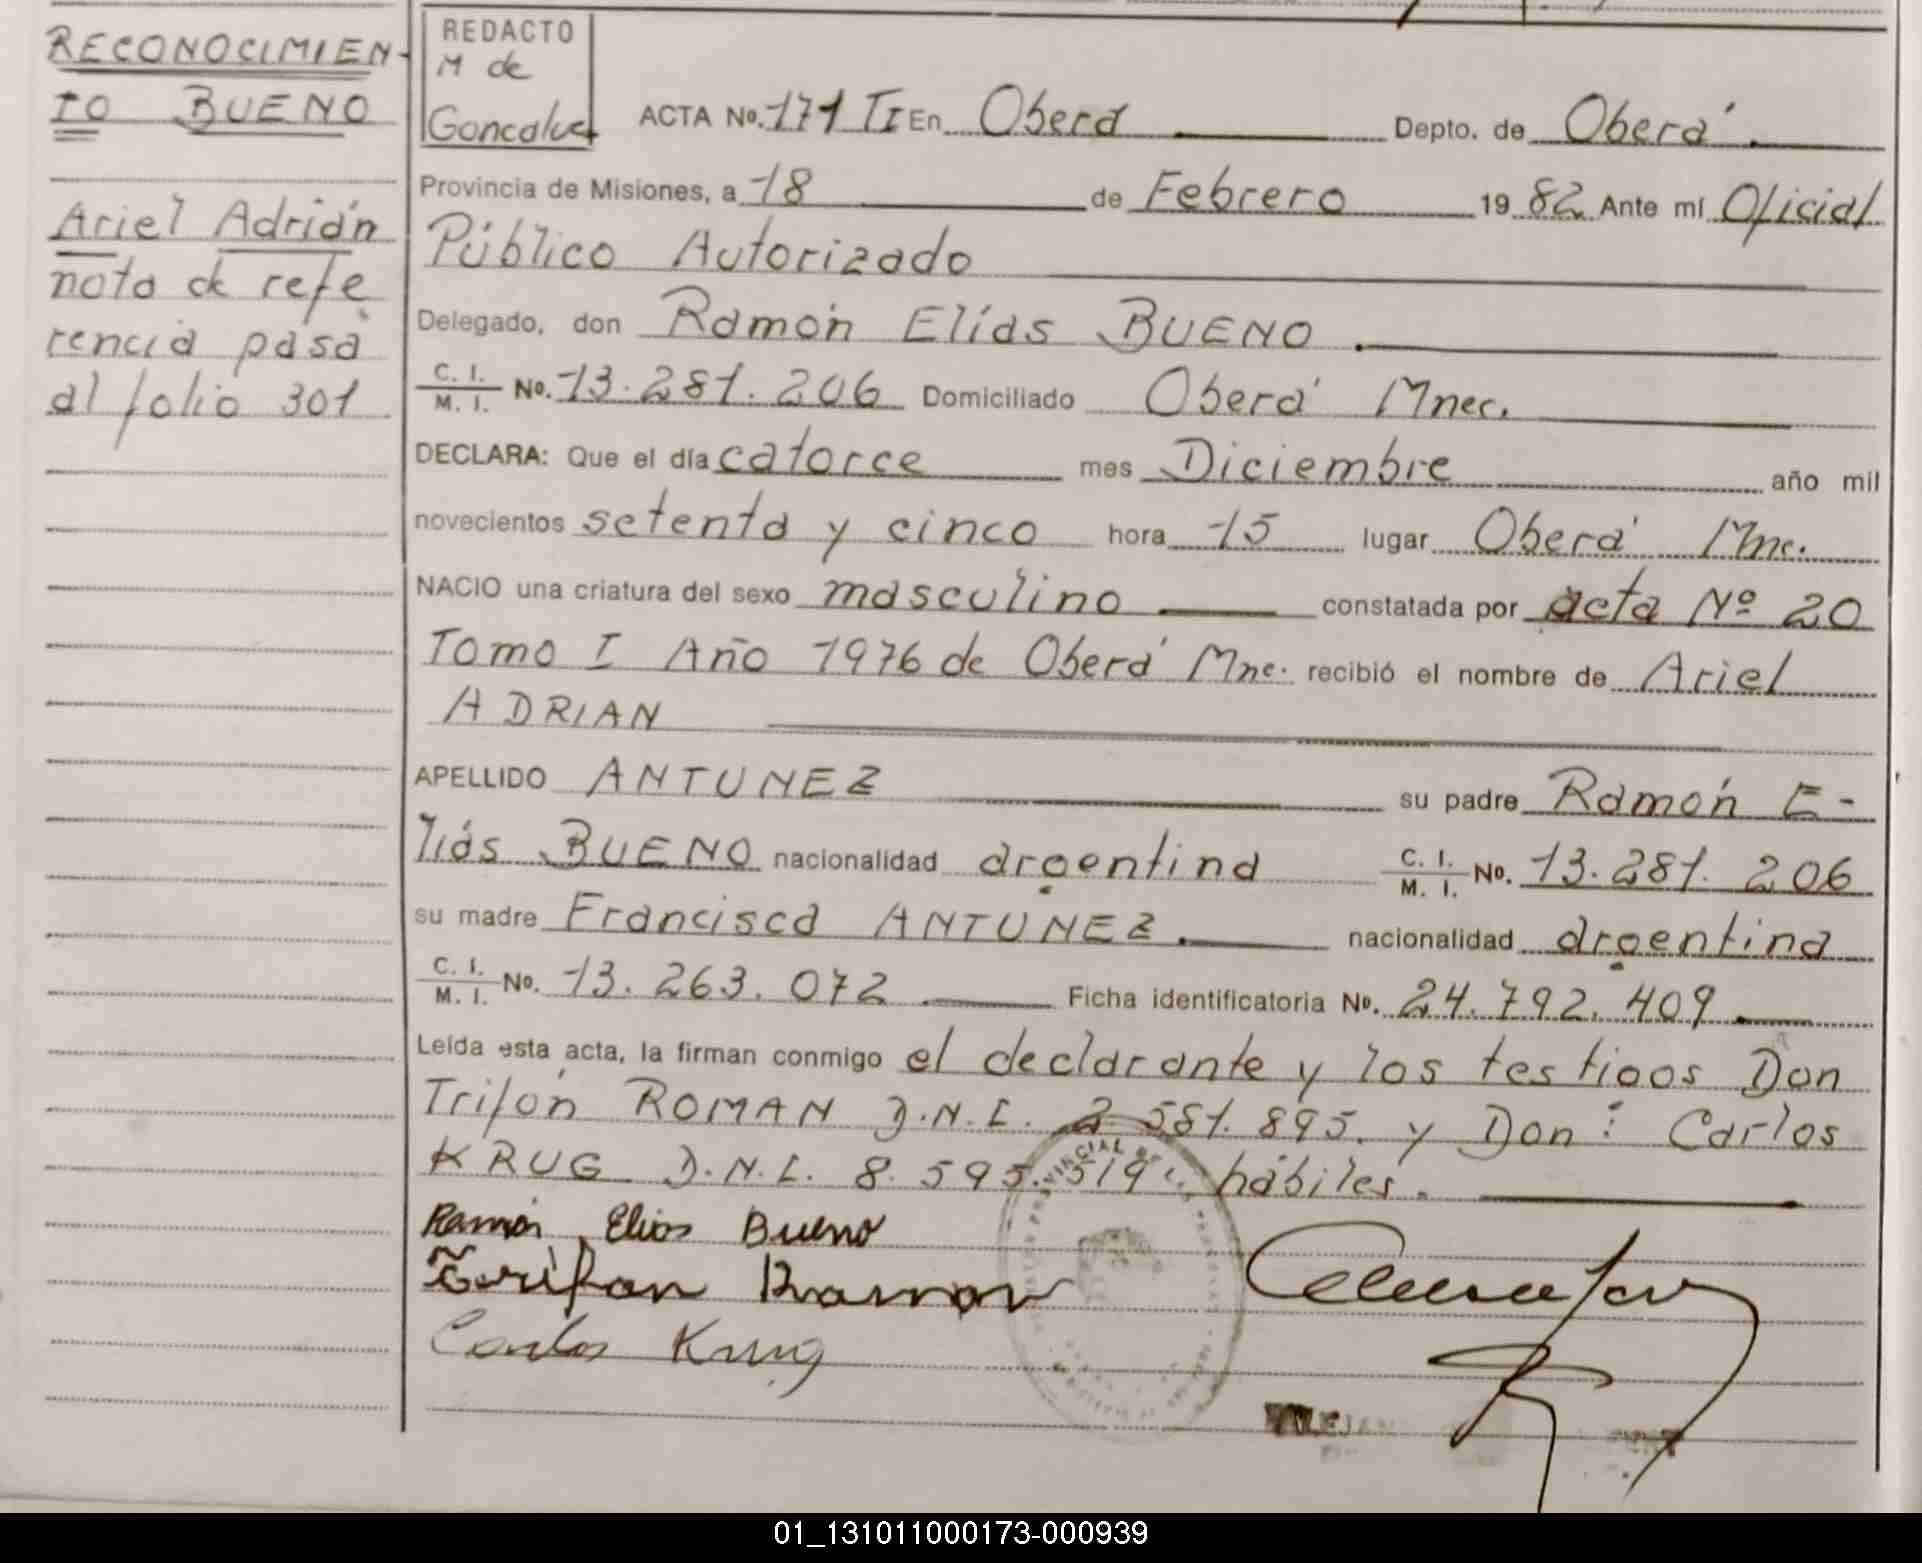 RECONOCIMIEN-
TO BUENO
Ariel Adrián
nota de refe
rencia pasa
al folio 301
REDACTO
M de
Goncalvez
ACTA No. 171 TI En Oberá Depto. de Oberá.
Provincia de Misiones, a 18 de Febrero 1982 Ante mí Oficial
Público Autorizado
Delegado, don Ramón Elías BUENO.
C. I. / M. I. No. 13.281.206 Domiciliado Oberá Mnec.
DECLARA: Que el día catorce mes Diciembre año mil
novecientos setenta y cinco hora 15 lugar Oberá Mnc.
NACIO una criatura del sexo masculino constatada por acta Nº 20
Tomo I Año 1976 de Oberá Mnc. recibió el nombre de Ariel
ADRIAN
APELLIDO ANTUNEZ su padre Ramón E-
liás BUENO nacionalidad argentina C. I. / M. I. No. 13.281.206
su madre Francisca ANTUNEZ. nacionalidad argentina
C. I. / M. I. No. 13.263.072 Ficha identificatoria No. 24.792.409
Leída esta acta, la firman conmigo el declarante y los testigos Don
Trifón ROMAN D.N.I. 2 581.895. y Don: Carlos
KRUG D.N.I. 8.595.519 hábiles.
Ramón Elias Bueno
Trifon Roman
Carlos Krug
01_131011000173-000939